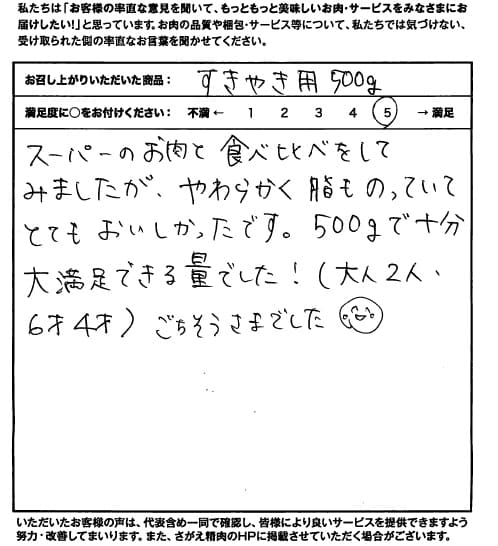 私たちは「お客様の率直な意見を聞いて、もっともっと美味しいお肉・サービスをみなさまにお
届けしたい!」と思っています。お肉の品質や梱包・サービス等について、私たちでは気づけない、
受け取られた側の率直なお言葉を聞かせてください。
お召し上がりいただいた商品: すきやき用 500g
満足度に○をお付けください: 不満 ← 1 2 3 4 5 → 満足
スーパーのお肉と 食べ比べをして
みましたが、やわらかく 脂ものっていて
とても おいしかったです。500gで十分
大満足できる量でした!(大人2人、
6才4才) ごちそうさまでした
いただいたお客様の声は、代表含め一同で確認し、皆様により良いサービスを提供できますよう
努力・改善してまいります。また、さがえ精肉のHPに掲載させていただく場合がございます。